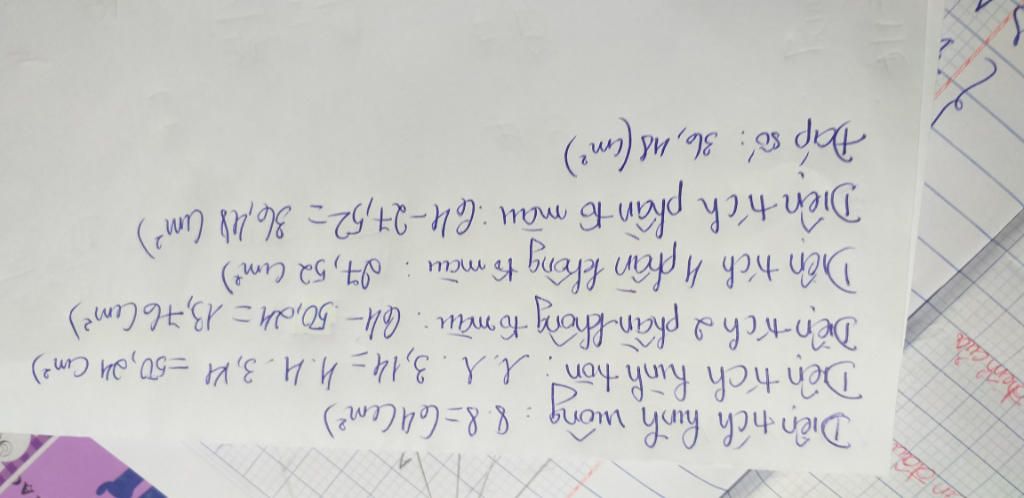 Diện tích hình vuông : 8.8=64(cm²)
Diện tích hình tròn : r.r.3,14=4.4.3,14=50,24 (cm²)
Diện tích 2 phần không tô màu: 64-50,24=13,76(cm²)
Diện tích 4 phần không tô màu : 27,52 (cm²)
Diện tích phần tô màu: 64-27,52=36,48 (cm²)
Đáp số: 36,48(cm²)